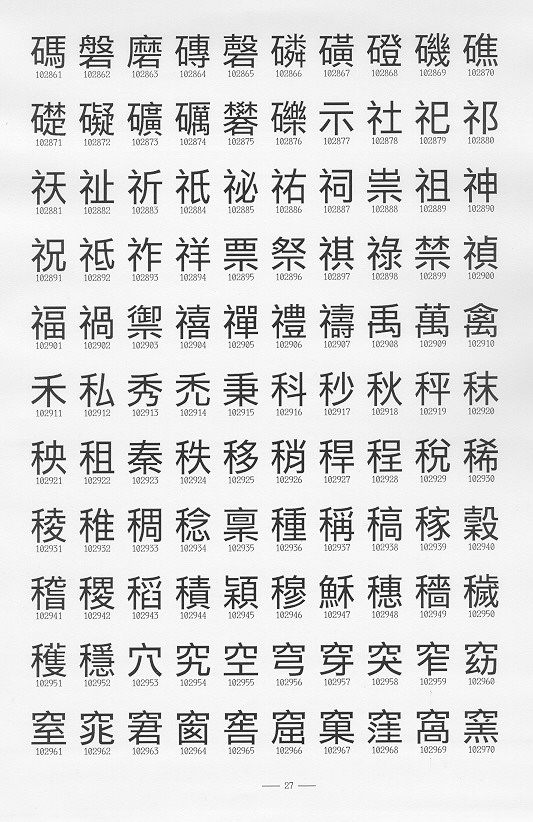 碼 磐 磨 磚 磬 磷 磺 磴 磯 礁
102861 102862 102863 102864 102865 102866 102867 102868 102869 102870
礎 礙 礦 礪 礬 礫 示 社 祀 祁
102871 102872 102873 102874 102875 102876 102877 102878 102879 102880
祆 祉 祈 祇 祕 祐 祠 祟 祖 神
102881 102882 102883 102884 102885 102886 102887 102888 102889 102890
祝 祗 祚 祥 票 祭 祺 祿 禁 禎
102891 102892 102893 102894 102895 102896 102897 102898 102899 102900
福 禍 禦 禧 禪 禮 禱 禹 萬 禽
102901 102902 102903 102904 102905 102906 102907 102908 102909 102910
禾 私 秀 禿 秉 科 秒 秋 秤 秣
102911 102912 102913 102914 102915 102916 102917 102918 102919 102920
秧 租 秦 秩 移 稍 稈 程 稅 稀
102921 102922 102923 102924 102925 102926 102927 102928 102929 102930
稜 稚 稠 稔 稟 種 稱 稿 稼 穀
102931 102932 102933 102934 102935 102936 102937 102938 102939 102940
稽 稷 稻 積 穎 穆 穌 穗 穡 穢
102941 102942 102943 102944 102945 102946 102947 102948 102949 102950
穫 穩 穴 究 空 穹 穿 突 窄 窈
102951 102952 102953 102954 102955 102956 102957 102958 102959 102960
窒 窕 窘 窗 窖 窟 窠 窪 窩 窯
102961 102962 102963 102964 102965 102966 102967 102968 102969 102970
— 27 —